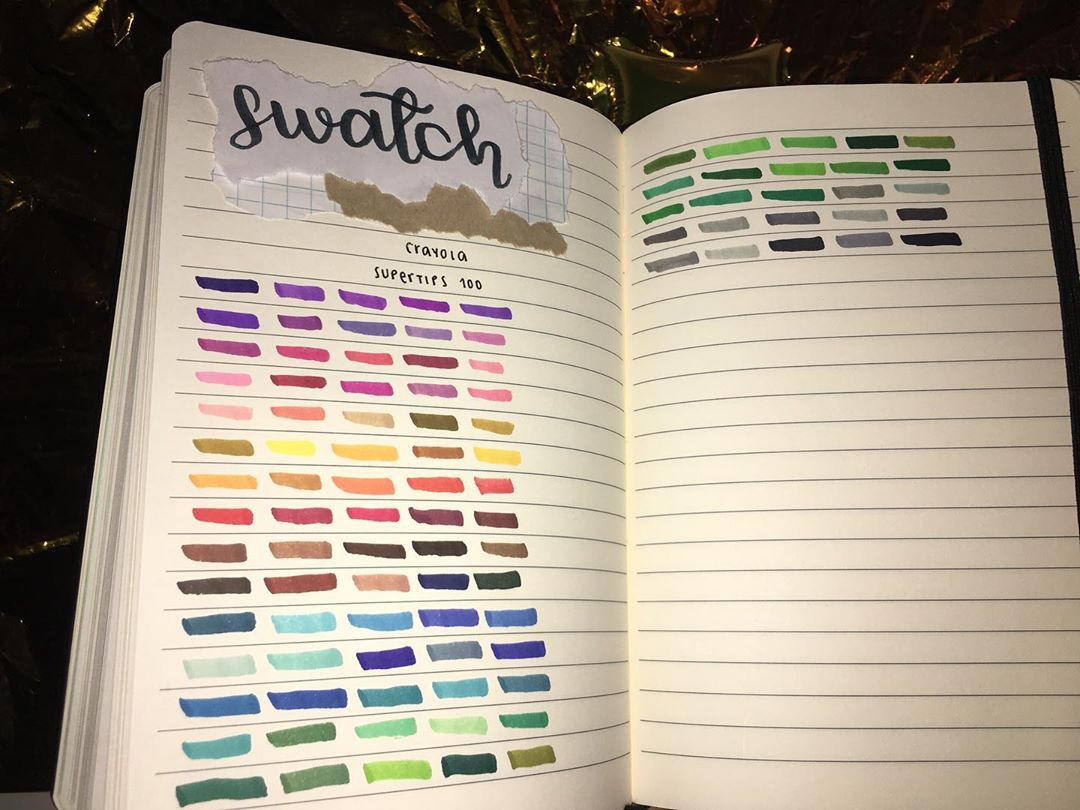 swatch
crayola
SUPERTIPS 100